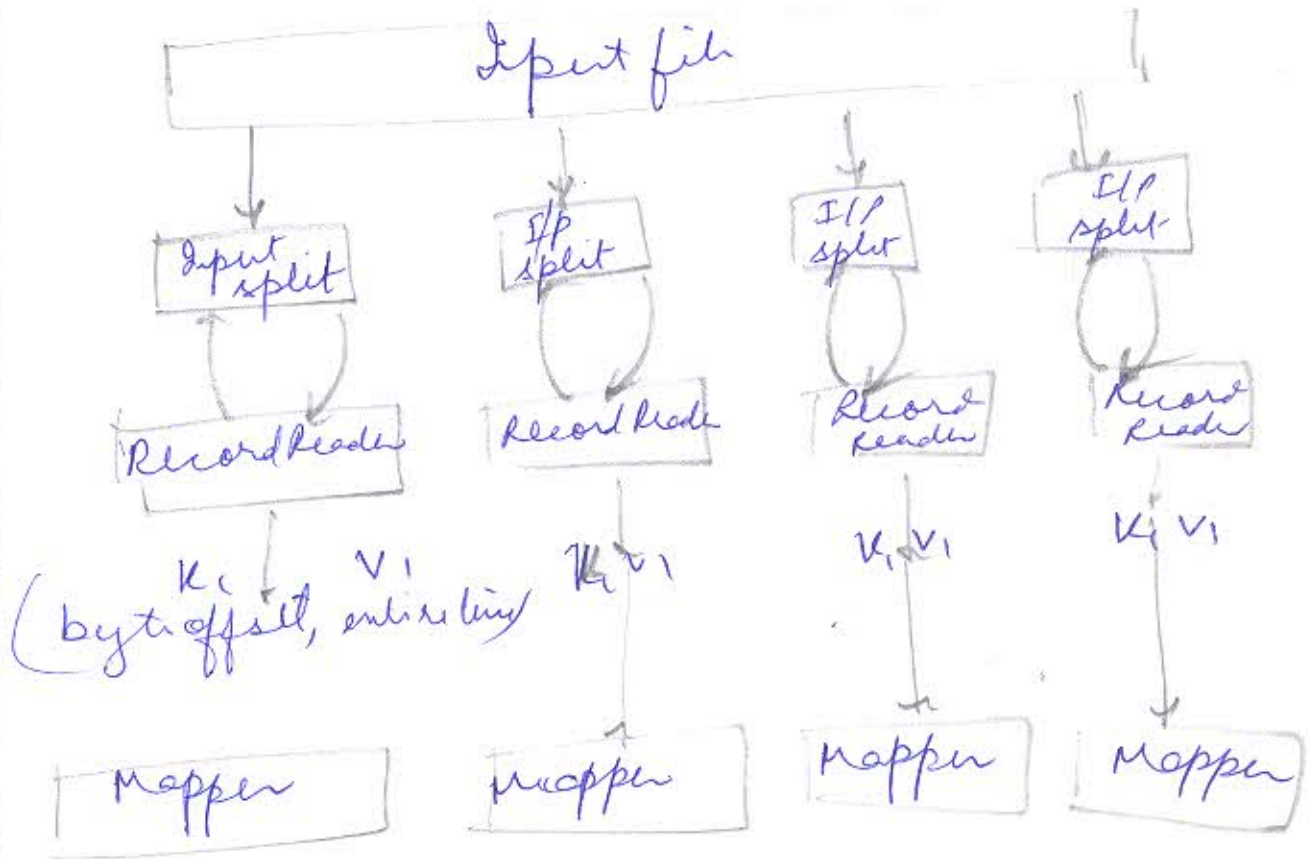 Input file
Input
split
I/P
split
I/P
split
I/P
split
RecordReader
Record Reader
Record
Reader
Record
Reader
K1 V1
(byte offset, entire line)
K1 V1
K1 V1
K1 V1
Mapper
Mapper
Mapper
Mapper